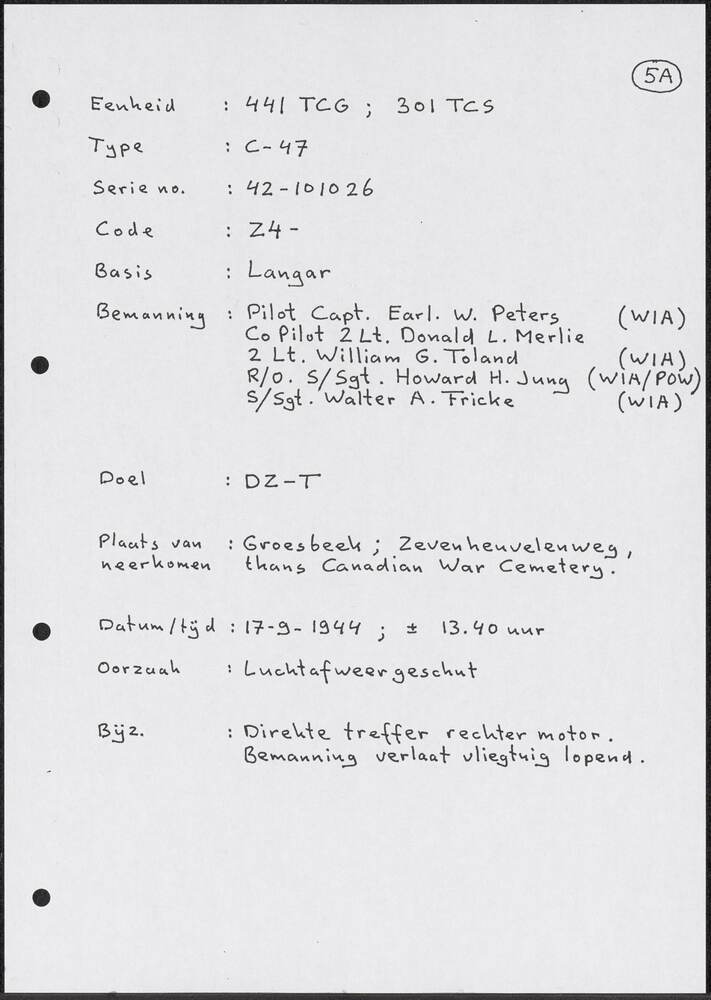 5A
Eenheid : 441 TCG ; 301 TCS
Type : C-47
Serie no. : 42-101026
Code : Z4-
Basis : Langar
Bemanning : Pilot Capt. Earl. W. Peters (WIA)
Co Pilot 2 Lt. Donald L. Merlie
2 Lt. William G. Toland (WIA)
R/O. S/Sgt. Howard H. Jung (WIA/POW)
S/Sgt. Walter A. Fricke (WIA)
Doel : DZ-T
Plaats van : Groesbeek ; Zevenheuvelenweg,
neerkomen thans Canadian War Cemetery.
Datum/tijd : 17-9-1944 ; ± 13.40 uur
Oorzaak : Luchtafweergeschut
Bijz. : Direkte treffer rechter motor.
Bemanning verlaat vliegtuig lopend.